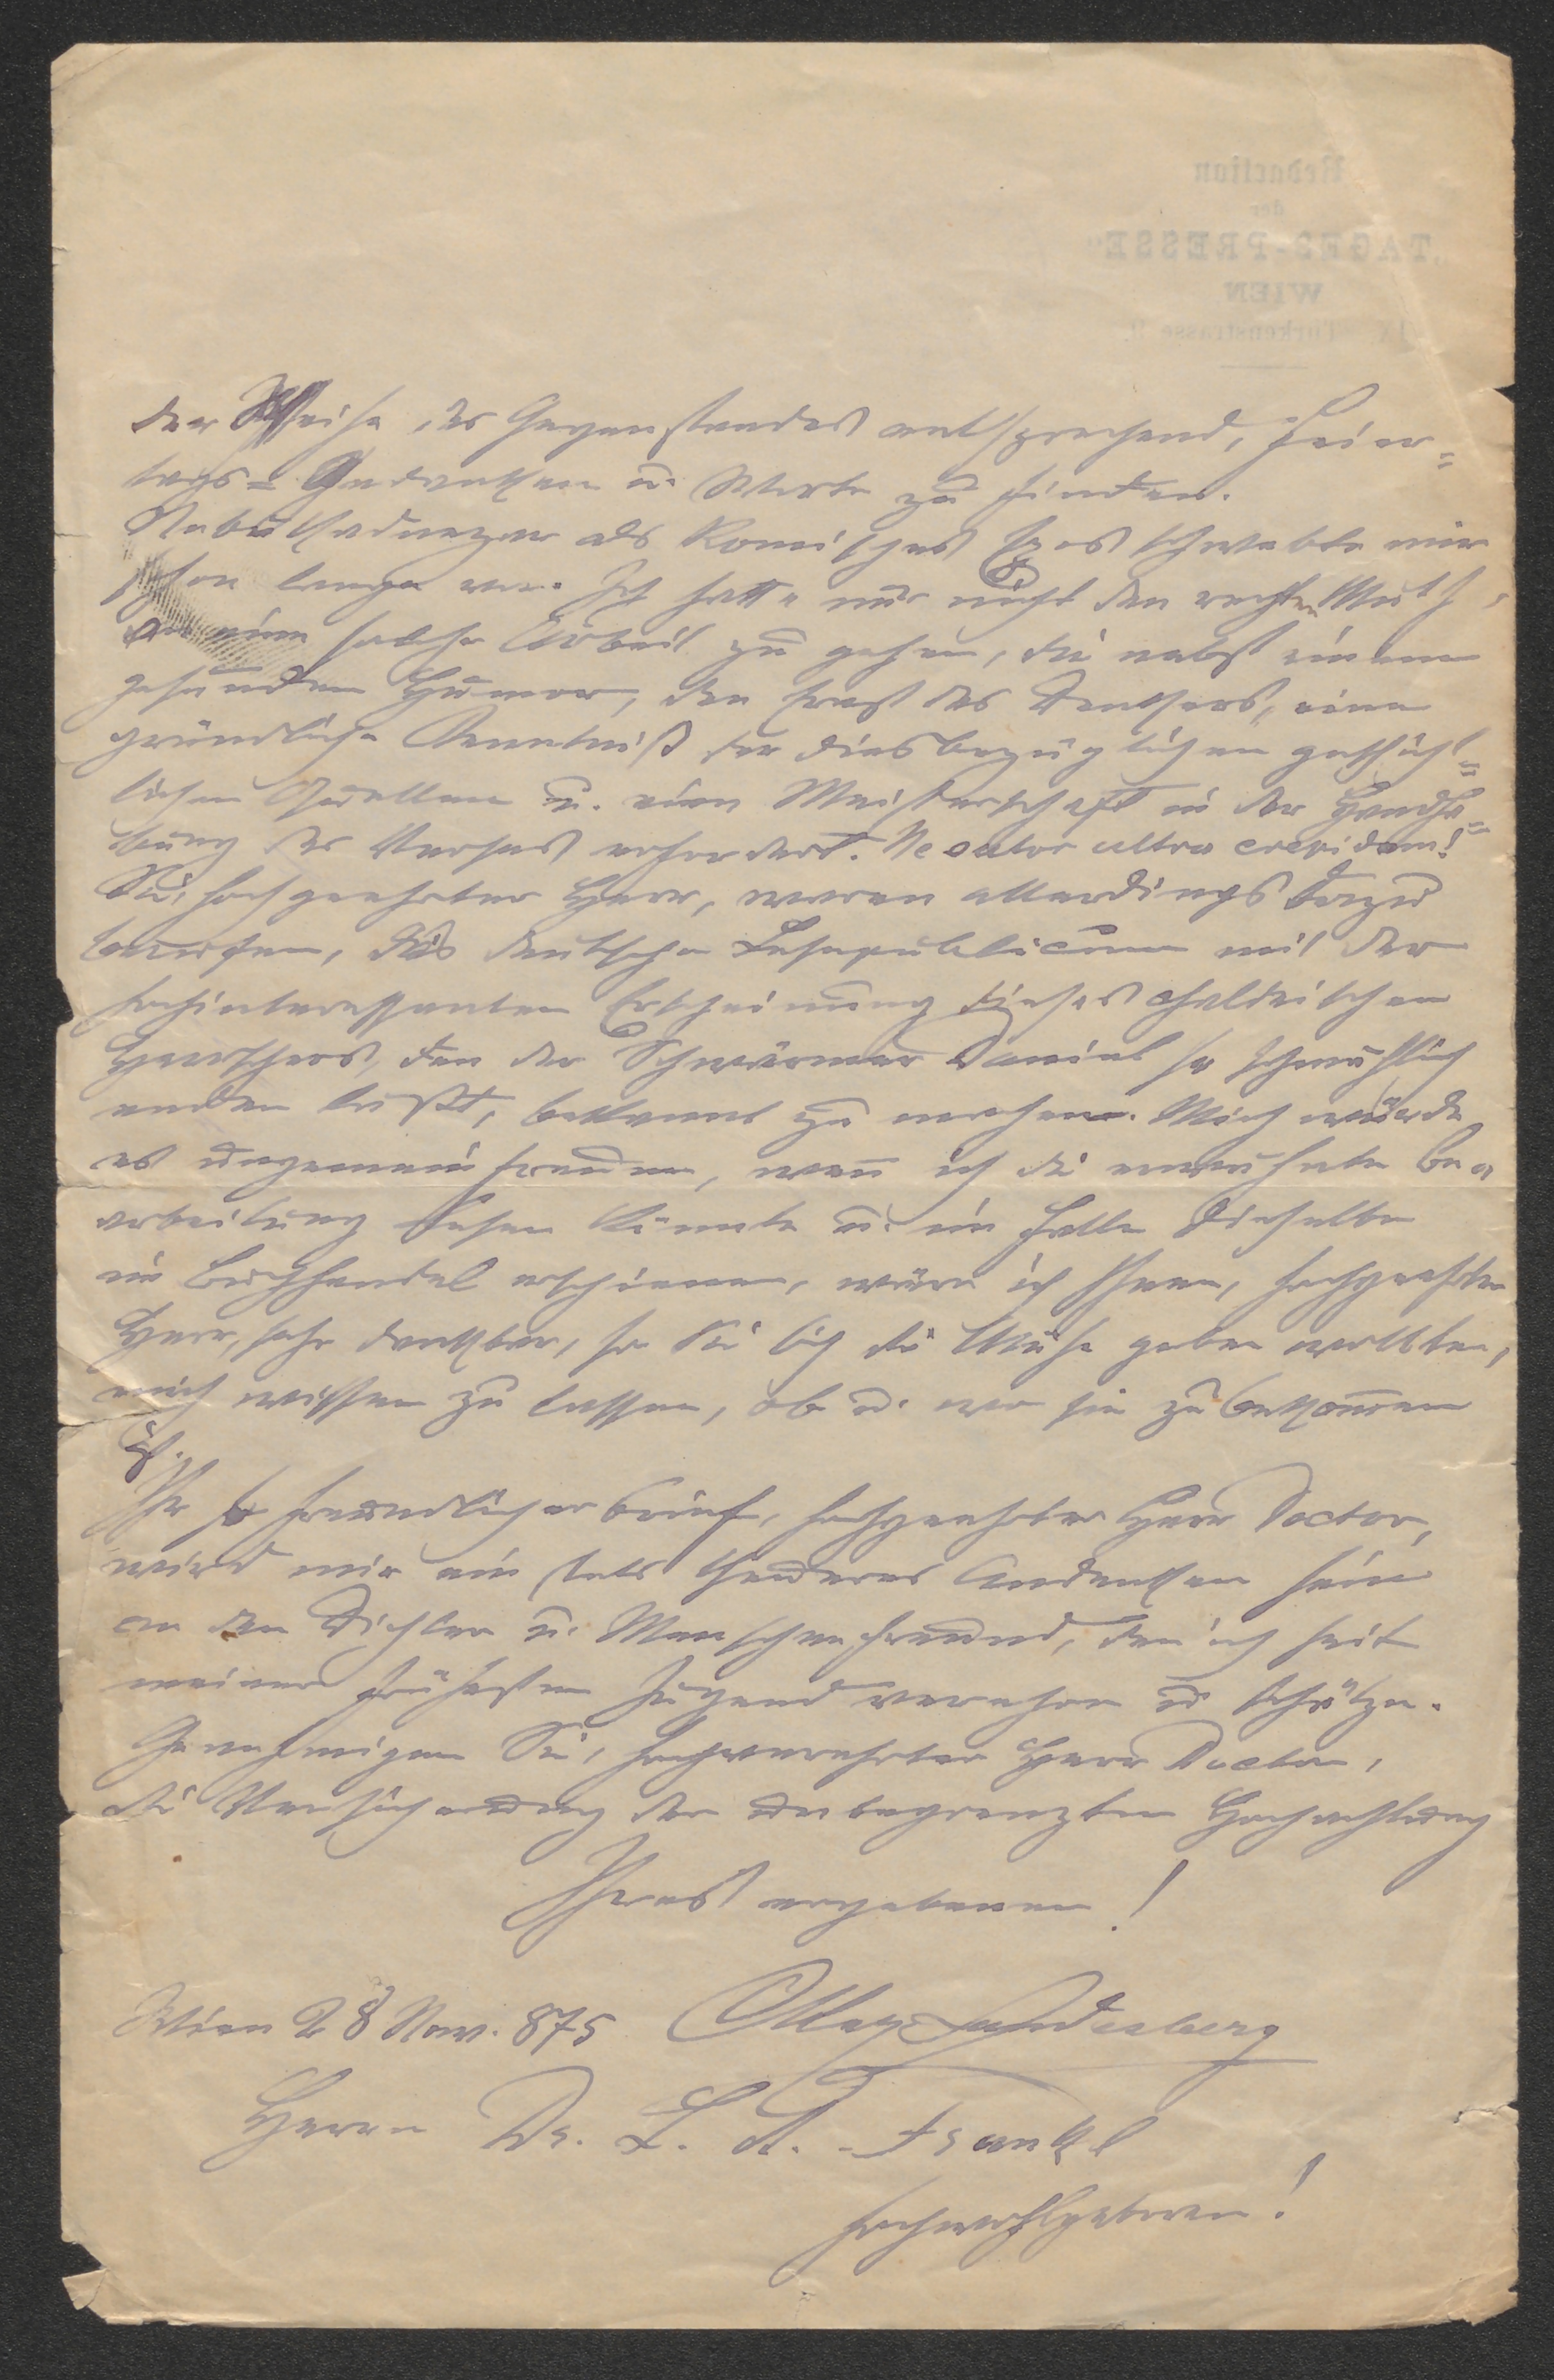 Redaction
der
„TAGES-PRESSE“
WIEN
IX. Türkenstrasse 9.
der Weihe des Gegenstandes entsprechend, Feier=
tags= Gedanken u. Worte zu finden.
Nabukadnezar als Komisches Epos schwebte mir
schon lange vor. Ich hatte nur nicht den rechten Muth,
an eine solche Arbeit zu gehen, die nebst einem
gesunden Humor, den Ernst des Denkers, eine
gründliche Kenntniß der diesbezüglichen geschicht=
lichen Quellen u. eine Meisterschaft in der Handha=
bung des Verses erfordert. Ne sutor ultra crepidam!
Sie, hochgeehrter Herr, waren allerdings dazu
berufen, das deutsche Lesepublicum mit der
hochinteressanten Erscheinung dieses chaldäischen
Herrschers, den der Schwärmer Daniel so schmählich
enden läßt, bekannt zu machen. Mich würde
es ungemein freuen, wenn ich die erwähnte Be=
arbeitung lesen könnte u. im Falle dieselbe
im Buchhandel erschienen, wäre ich Ihnen, hochgeehrter
Herr, sehr dankbar, so Sie sich die Mühe geben wollten,
mich wissen zu lassen, ob u. wo sie zu bekommen
ist.
Ihr so freundlicher Brief, hochgeehrter Herr Doctor,
wird mir ein stets theueres Andenken sein
an den Dichter u. Menschenfreund, den ich seit
meiner frühesten Jugend verehre u. schätze.
Genehmigen Sie, hochverehrter Herr Doctor,
die Versicherung der unbegrenzten Hochachtung
Ihres ergebenen!
Wien 28 Nov. 875 Max Landesberg
Herrn Dr. L. A. Frankl
Hochwohlgeboren!